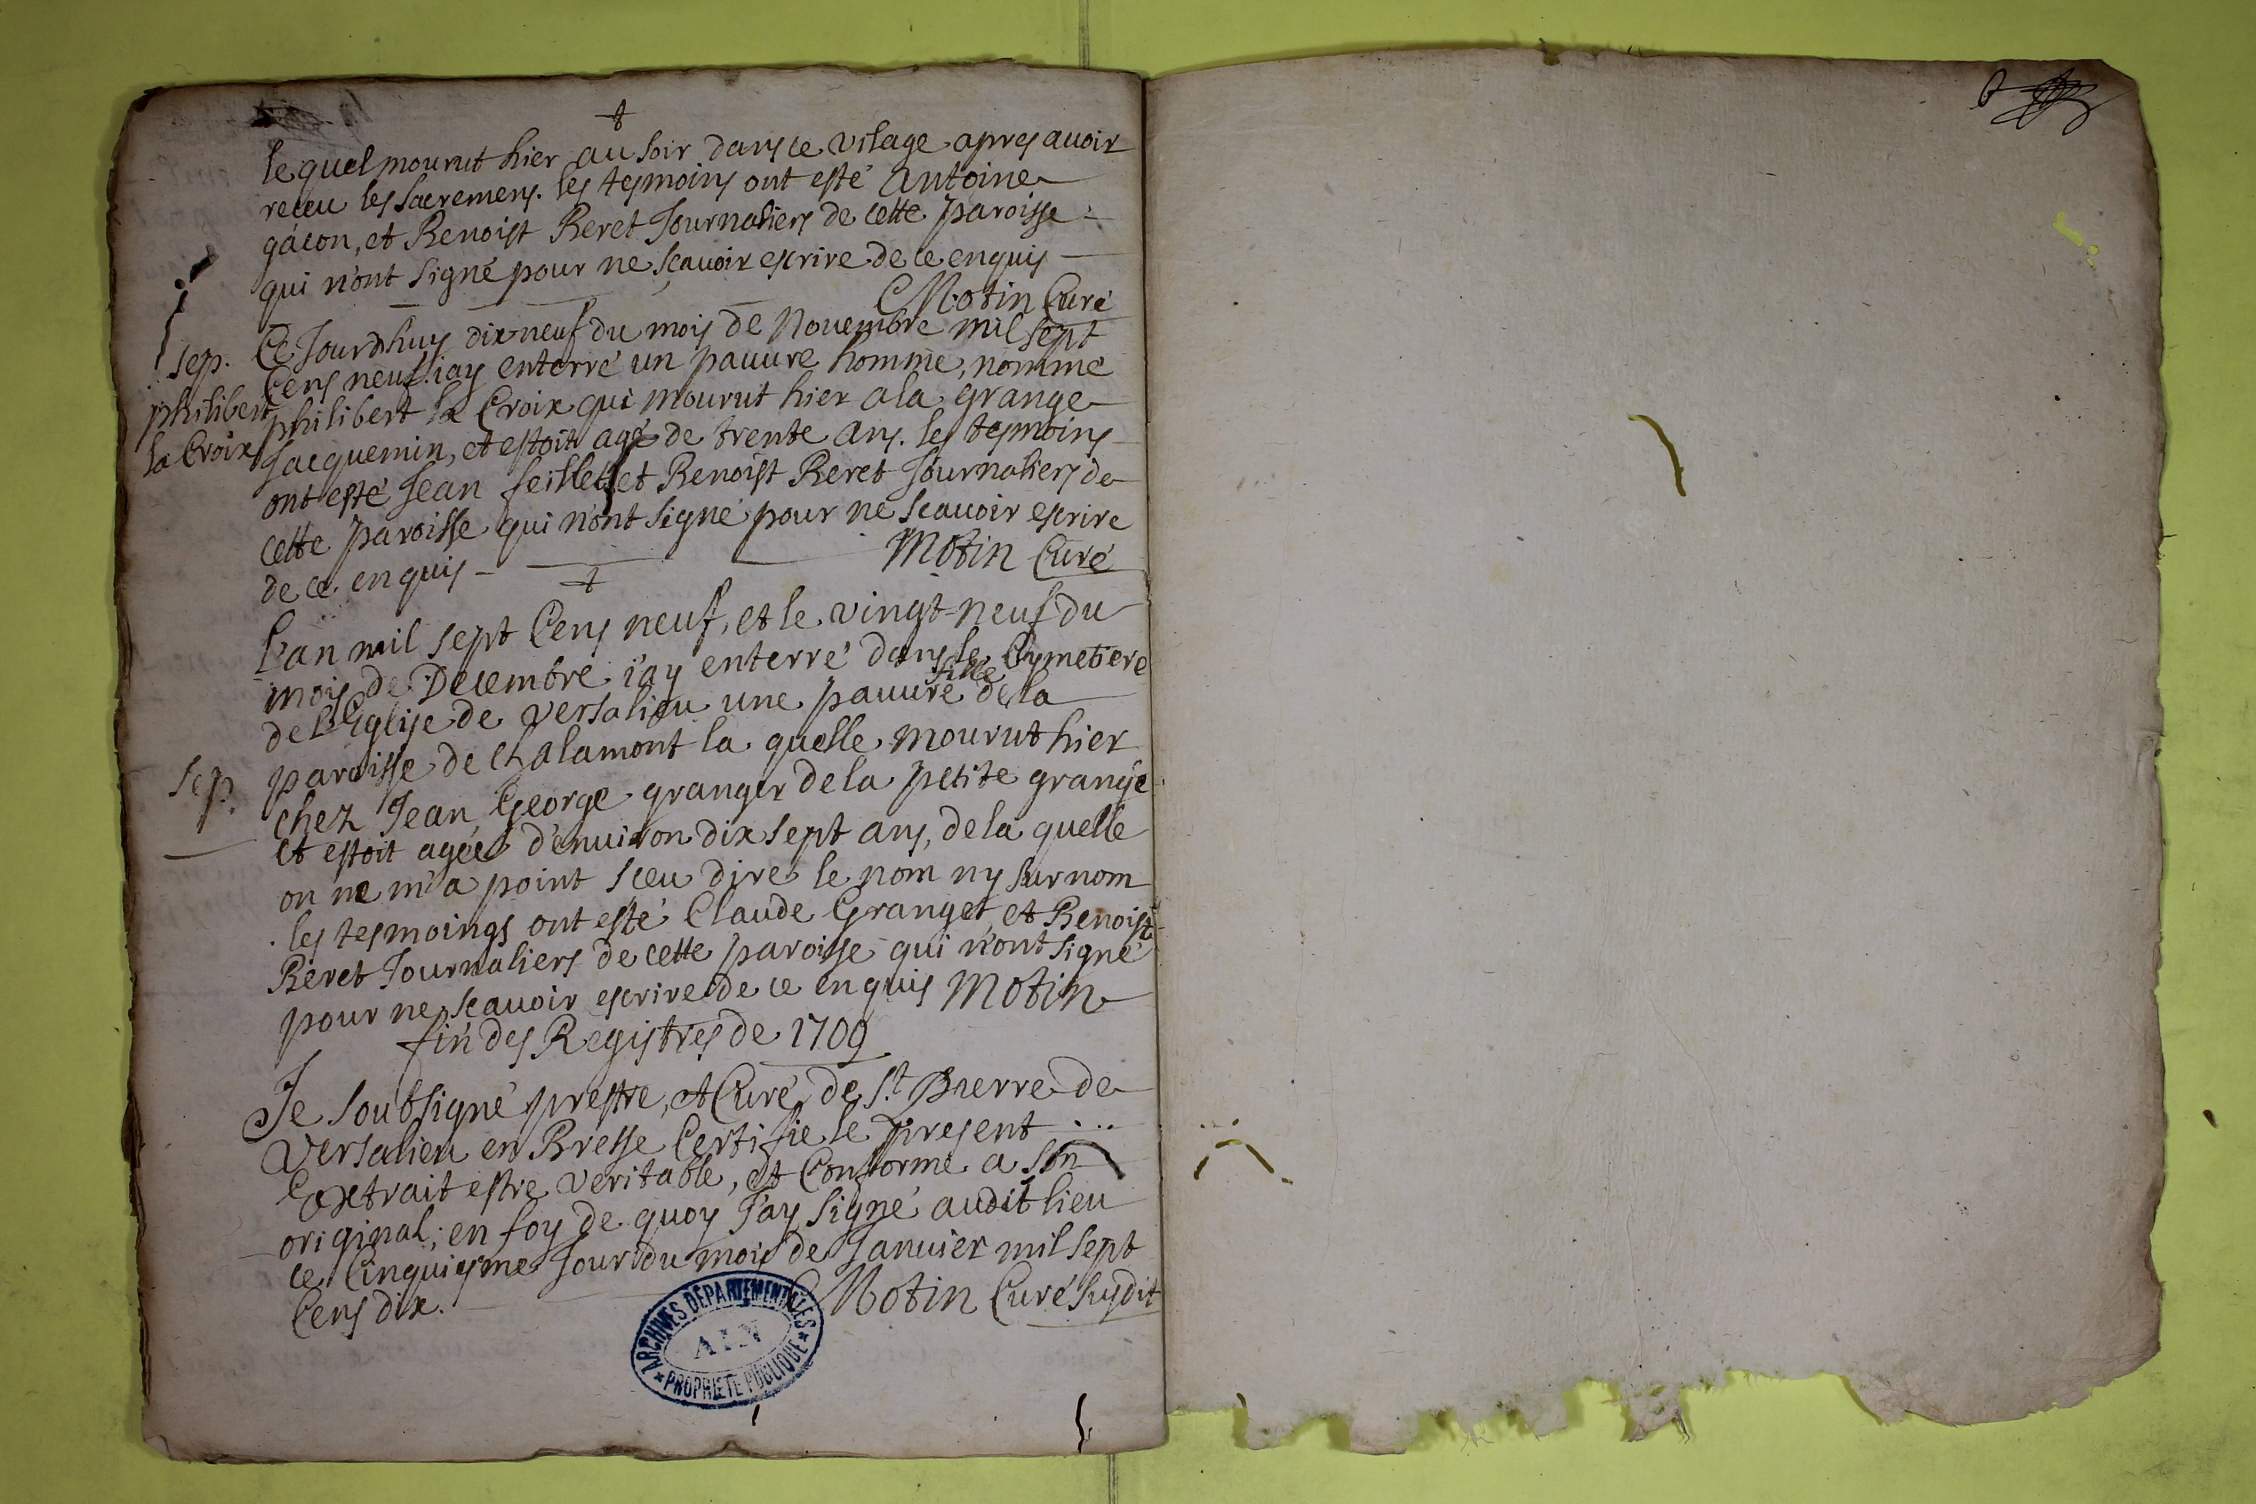 le quel mourut hier au soir dans ce vilage apres avoir
receu les sacremens. les tesmoins ont esté Antoine
gácon, et Benoist Beret Journaliers de cette paroisse
qui n'ont signé pour ne sçavoir escrire de ce enquis
Motin Curé
Ce Jourdhuy dix neuf du mois de Novembre mil sept
sep. Cens neuf. i'ay enterré un pauvre homme, nommé
philibert philibert la Croix qui mourut hier a la grange
la Croix Jacquemin, et estoit agé de trente ans. les tesmoins
ont esté Jean feillet et Benoist Beret Journaliers de
cette paroisse qui n'ont signé pour ne scavoir escrire
de ce enquis Motin Curé
L'an mil sept Cens neuf, et le vingt-neuf du
mois de Decembre i'ay enterré dans le Cymetiere
fille
de l'Eglise de Versalieu une pauvre de la
paroisse de Chalamont la quelle mourut hier
sep. chez Jean George granger de la petite grange
et estoit agée d'environ dix sept ans, de la quelle
on ne m'a point sceu dire le nom ny surnom
. les tesmoings ont esté Claude Granget, et Benoist
Beret Journaliers de cette paroisse qui n'ont signé
pour ne scavoir escrire de ce enquis Motin
fin des Registres de 1709
Je soubsigné prestre, et Curé de St. Pierre de
Versalieu en Bresse Certifie le present
Extrait estre veritable, et Conforme a son
original; en foy de quoy J'ay signé audit lieu
ce Cinquiesme Jour du mois de Janvier mil sept
Cens dix. Motin Curé susdit
ARCHIVES DÉPARTEMENTALES
AIN
* PROPRIÉTÉ PUBLIQUE *